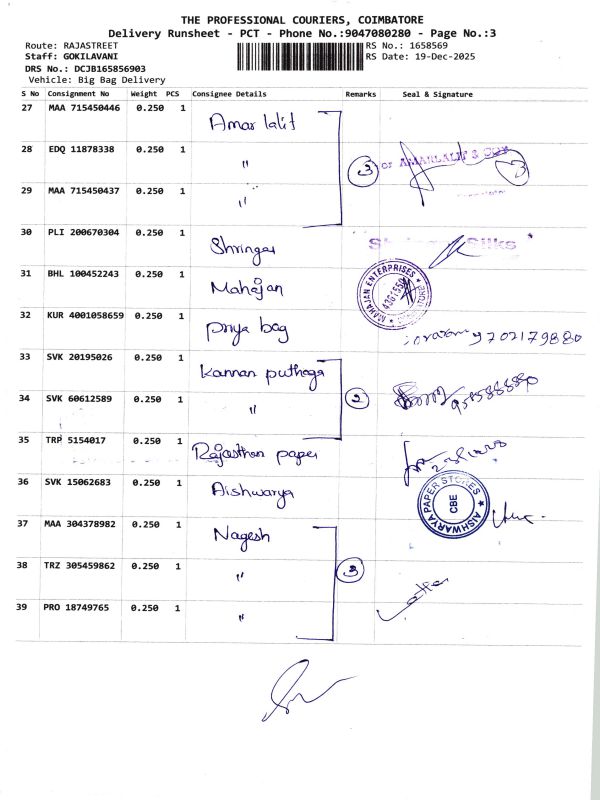 THE PROFESSIONAL COURIERS, COIMBATORE
Delivery Runsheet - PCT - Phone No.:9047080280 - Page No.:3
Route: RAJASTREET RS No.: 1658569
Staff: GOKILAVANI RS Date: 19-Dec-2025
DRS No.: DCJB165856903
Vehicle: Big Bag Delivery
S No Consignment No Weight PCS Consignee Details Remarks Seal & Signature
27 MAA 715450446 0.250 1 Amar lalit
28 EDQ 11878338 0.250 1 " 3 AMARLALIT & CO
29 MAA 715450437 0.250 1 "
30 PLI 200670304 0.250 1 Shringar Silks
31 BHL 100452243 0.250 1 Mahajan MAHAJAN ENTERPRISES
32 KUR 4001058659 0.250 1 Priya bag 9702179880
33 SVK 20195026 0.250 1 Kannan puthaga
34 SVK 60612589 0.250 1 " 2
35 TRP 5154017 0.250 1 Rajasthan paper
36 SVK 15062683 0.250 1 Aishwarya AISHWARYA PAPER STORES CBE
37 MAA 304378982 0.250 1 Nagesh
38 TRZ 305459862 0.250 1 " 3
39 PRO 18749765 0.250 1 "